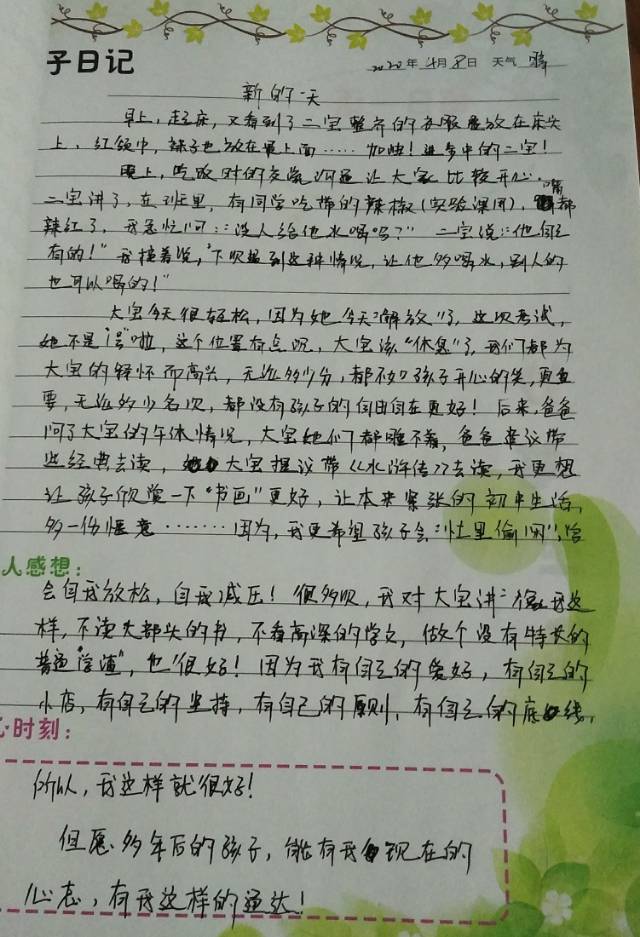 子日记
2020年 4月 8日 天气 晴
新的一天
早上，起床，又看到了二宝整齐的衣服叠放在床头
上，红领巾，袜子也放在最上面……加油！进步中的二宝！
晚上，吃饭时的交流沟通让大家比较开心。
二宝讲了，在班里，有同学吃带的辣椒(实验课用)，嘴都
辣红了，我急忙问：“没人给他水喝吗？”二宝说：“他自己
有的！”我接着说，“下次遇到这种情况，让他多喝水，别人的
也可以喝的！”
大宝今天很轻松，因为她今天“解放”了，这次考试，
她不是1号啦，这个位置有点呢，大宝该“休息”了，我们都为
大宝的释怀而高兴，无论多少分，都不如孩子开心的笑，更重
要，无论多少名次，都没有孩子的自由自在更好！后来，爸爸
问了大宝的午休情况，大宝她们都睡不着，爸爸建议带
些经典去读，大宝提议带《水浒传》去读，我更想
让孩子欣赏一下“书画”更好，让本来紧张的初中生活，
多一份惬意………因为，我更希望孩子会“忙里偷闲”，学
人感想：
会自我放松，自我减压！很多次，我对大宝讲：像我这
样，不读大部头的书，不看高深的学文，做个没有特长的
普通“学渣”，也很好！因为我有自己的爱好，有自己的
小店，有自己的坚持，有自己的原则，有自己的底线，
心时刻：
所以，我这样就很好！
但愿多年后的孩子，能有我现在的
心态，有我这样的通达！